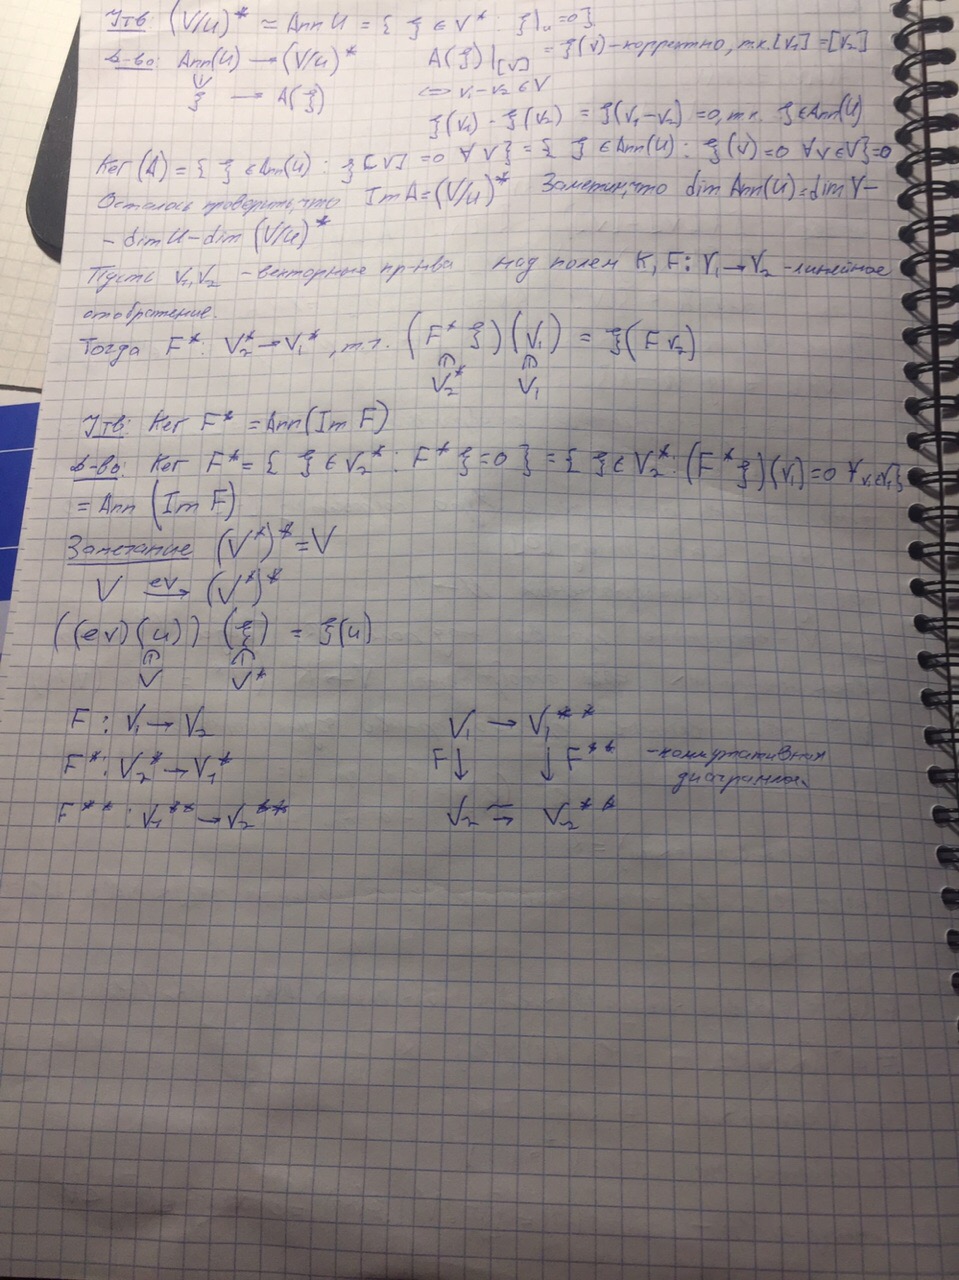 Утв: (V/U)* ≃ Ann U = { ξ ∈ V* : ξ|ᵤ = 0}
Д-во: Ann(U) → (V/U)* A(ξ)|[v] = ξ(v) - корректно, т.к. [v₁] = [v₂]
ξ → A(ξ) <=> v₁ - v₂ ∈ V
ξ(v₁) - ξ(v₂) = ξ(v₁-v₂) = 0, т.к. ξ ∈ Ann(U)
Ker(A) = { ξ ∈ Ann(U) : ξ[v] = 0 ∀ v} = { ξ ∈ Ann(U) : ξ(v) = 0 ∀ v ∈ V} = 0
Осталось проверить, что Im A = (V/U)* Заметим, что dim Ann(U) = dim V -
- dim U - dim (V/U)*
Пусть V₁, V₂ - векторные пр-ва над полем K, F: V₁ → V₂ - линейное
отображение.
Тогда F*: V₂* → V₁*, т.ч. (F* ξ)(v₁) = ξ(F v₂)
V₂* V₁
Утв: Ker F* = Ann(Im F)
Д-во: Ker F* = { ξ ∈ V₂* : F* ξ = 0 } = { ξ ∈ V₂* : (F* ξ)(v₁) = 0 ∀ v₁ ∈ V₁}
= Ann (Im F)
Замечание (V*)* = V
V ev→ (V*)*
((ev)(u)) (ξ) = ξ(u)
V V*
F : V₁ → V₂ V₁ → V₁**
F*: V₂* → V₁* F ↓ ↓ F** - коммутативная
диаграмма
F** : V₁** → V₂** V₂ ≃→ V₂**